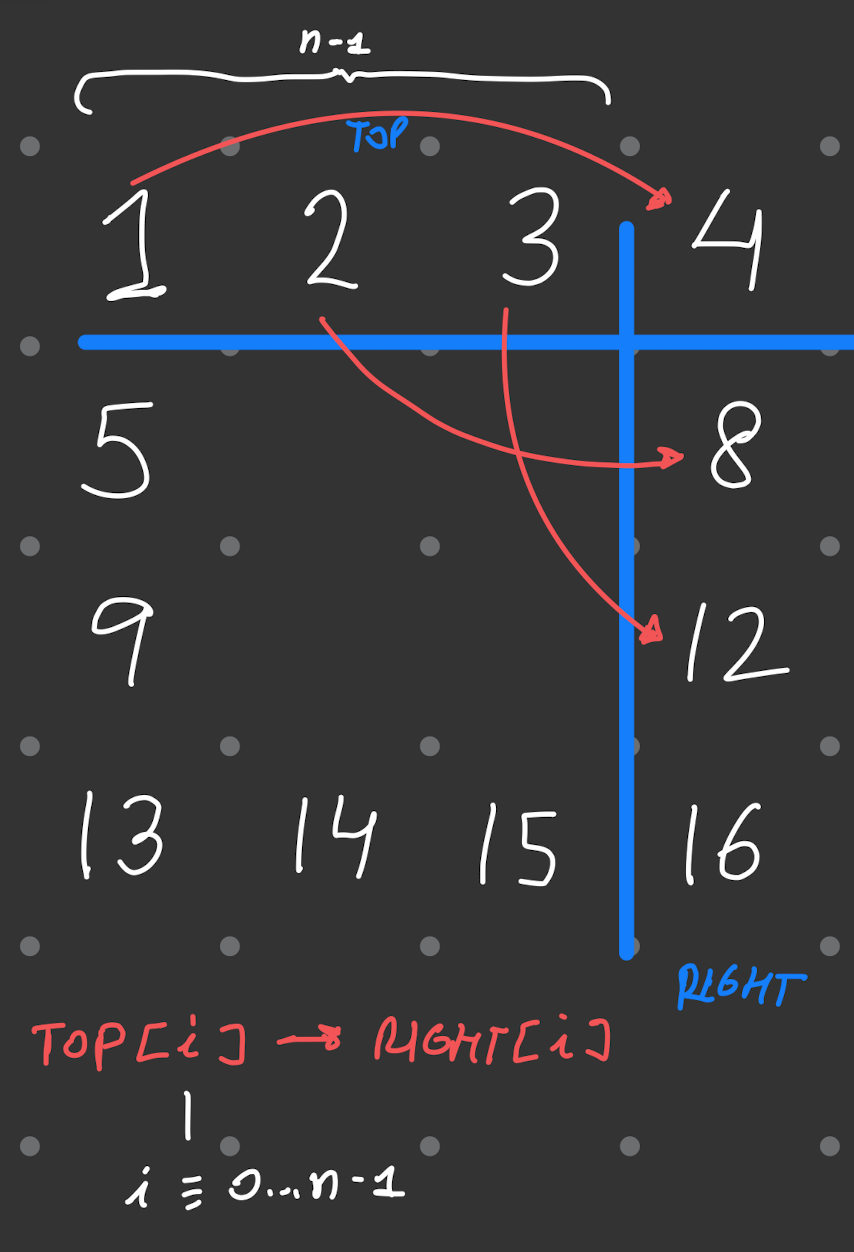 n-1
TOP
1 2 3 4
5 8
9 12
13 14 15 16
RIGHT
TOP[i] → RIGHT[i]
i ≡ 0...n-1